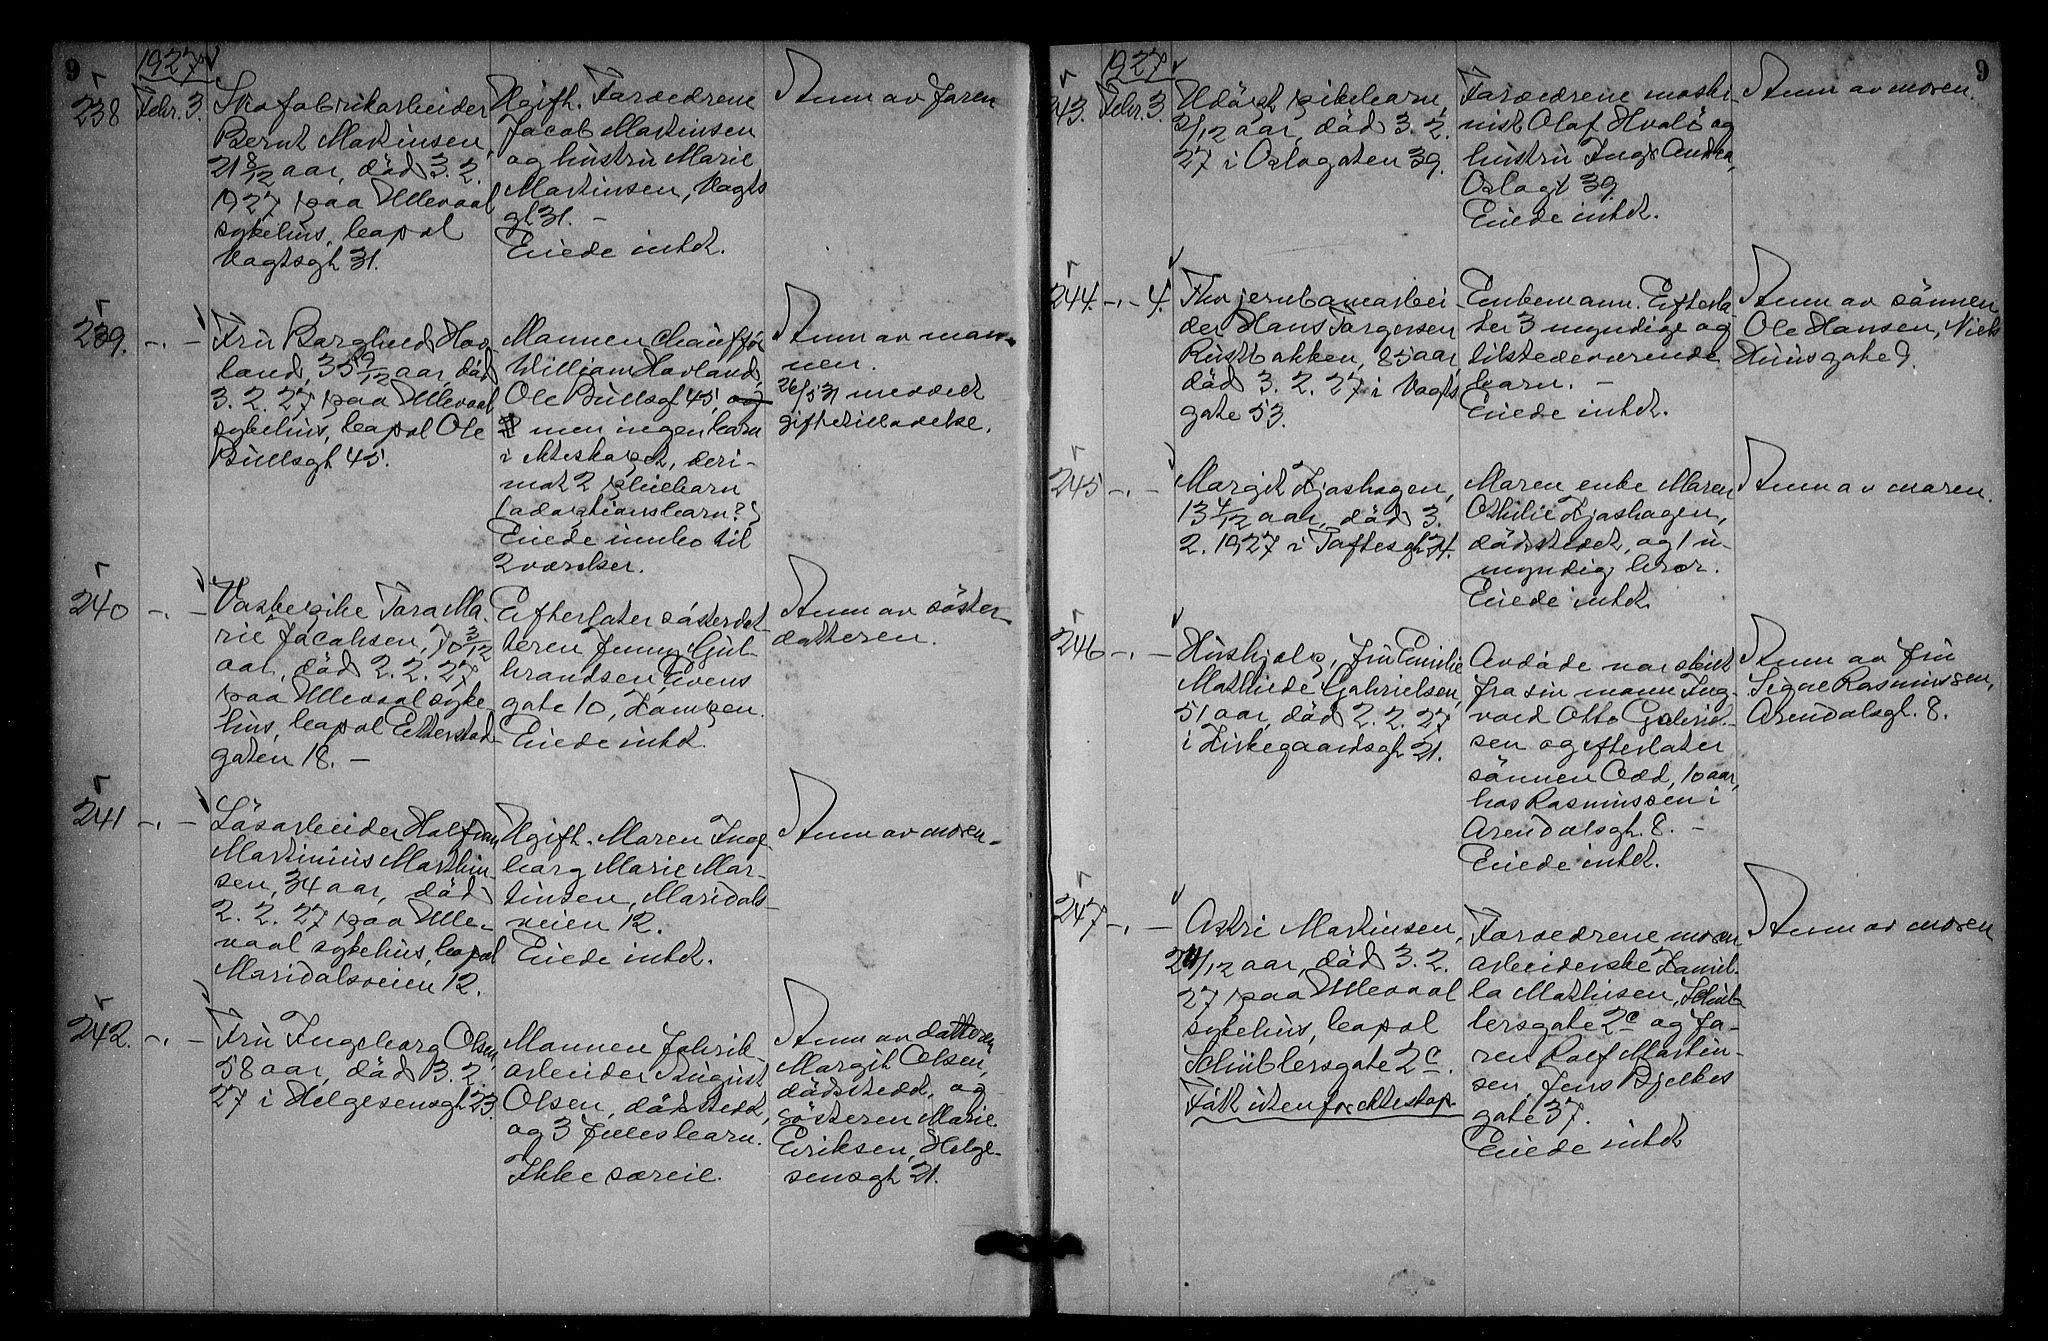 9
1927
238
Febr. 3.
Skofabrikarbeider
Bernt Martinsen,
21 8/12 aar, död 3. 2.
1927 paa Ullevaal
sykehus, bopal
Vogtsgt 31.
Ugift. Foræedrene
Jacob Martinsen
og hustru Marie
Martinsen, Vogts
gt 31. –
Eiede intet.
Anm av faren
239. -.-
Fru Borghild Hov
land, 35 10/12 aar, död
3. 2. 27 paa Ullevaal
sykehus, bopal Ole
Bullsgt 45.
Mannen chauffør
William Hovland,
Ole Bullsgt 45, og
men ingen barn
i ekteskapet, deri-
mot 2 pleiebarn
(adoptionsbarn?)
Eiede innbo til
2 værelser.
Anm av man-
nen.
26/5 31 meddelt
giftetilladelse.
240 -.-
Vaskepike Tora Ma-
rie Jacobsen, 70 3/12
aar, död 2. 2. 27
paa Ullevaal syke
hus, bopal Etterstad
gaten 18. –
Efterlater søsterdat
teren Jenny Gul-
brandsen, Evens
gate 10, Kampen.
Eiede intet
Anm av søster-
datteren.
241 -.-
Løsarbeider Halfdan
Martinius Marthin-
sen, 34 aar, død
2. 2. 27 paa Ulle-
vaal sykehus, bopal
Maridalsveien 12.
Ugift. Moren Inge-
borg Marie Mar-
tinsen, Maridals-
veien 12.
Eiede intet.
Anm av moren-
242. -.-
Fru Ingeborg Olsen,
58 aar, död 3. 2.
27 i Helgesensgt 23
Mannen fabrik-
arbeider August
Olsen, dødsstedet,
og 3 fælles barn.
Ikke særeie.
Anm av datteren
Margit Olsen,
dødsstedet, og
søsteren Marie
Eriksen, Helge-
sensgt 21.
9
1927
243. Febr. 3.
Udöpt pikebarn,
3/12 aar, död 3. 2.
27 i Oslogaten 39.
Foræedrene maski-
nist Olaf Hvalö og
hustru Inga Andrea,
Oslogt 39
Eiede intet.
Anm av moren.
244. -.- 4.
Fhv jernbanearbei
der Hans Torgersen
Rustbakken, 85 aar,
död 3. 2. 27 i Vogts
gate 53.
Enkemann. Efterla-
ter 3 myndige og
tilstedeværende
barn. –
Eiede intet.
Anm av sønnen
Ole Hansen, Niels
Huus gate 9.
245 -.-
Margit Kjøshagen,
13 4/12 aar, död 3.
2. 1927 i Toftesgt 24.
Moren enke Maren
Othilie Kjøshagen,
dødsstedet, og 1 u-
myndig bror.
Eiede intet
Anm av moren.
246 -.-
Hushjelp, fru Emilie
Mathilde Gabrielsen,
51 aar, död 2. 2. 27
i Kirkegaardsgt 21.
Avdøde var skilt
fra sin mann Ing-
vald Otto Gabriel-
sen og efterlater
sønnen Odd, 10 aar,
hos Rasmussen i
Arendalsgt. 8. –
Eiede intet.
Anm av fru
Signe Rasmussen,
Arendalsgt. 8.
247. -.-
Astri Martinsen,
2 11/12 aar, död 3. 2.
27 paa Ullevaal
sykehus, bopal
Schüblersgate 2c.
Født utenfor ekteskap.
Foræedrene, moren
arbeiderske Kamil-
la Mathisen, Schüb
lersgate 2c og fa-
ren Rolf Martin-
sen, Jens Bjelkes
gate 37.
Eiede intet
Anm av moren